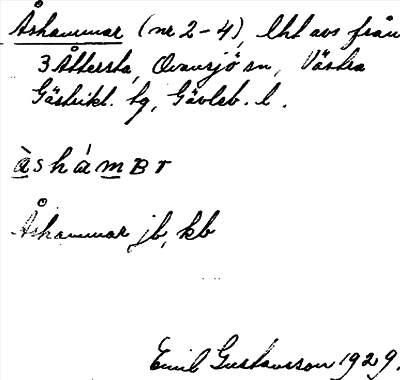 Åshammar (nr 2-4), lht avs från
3 Åttersta, Ovansjö sn, Västra
Gästrikl. tg, Gävleb. l.
àshámBr
Åshammar jb, kb
Emil Gustavsson 1929.